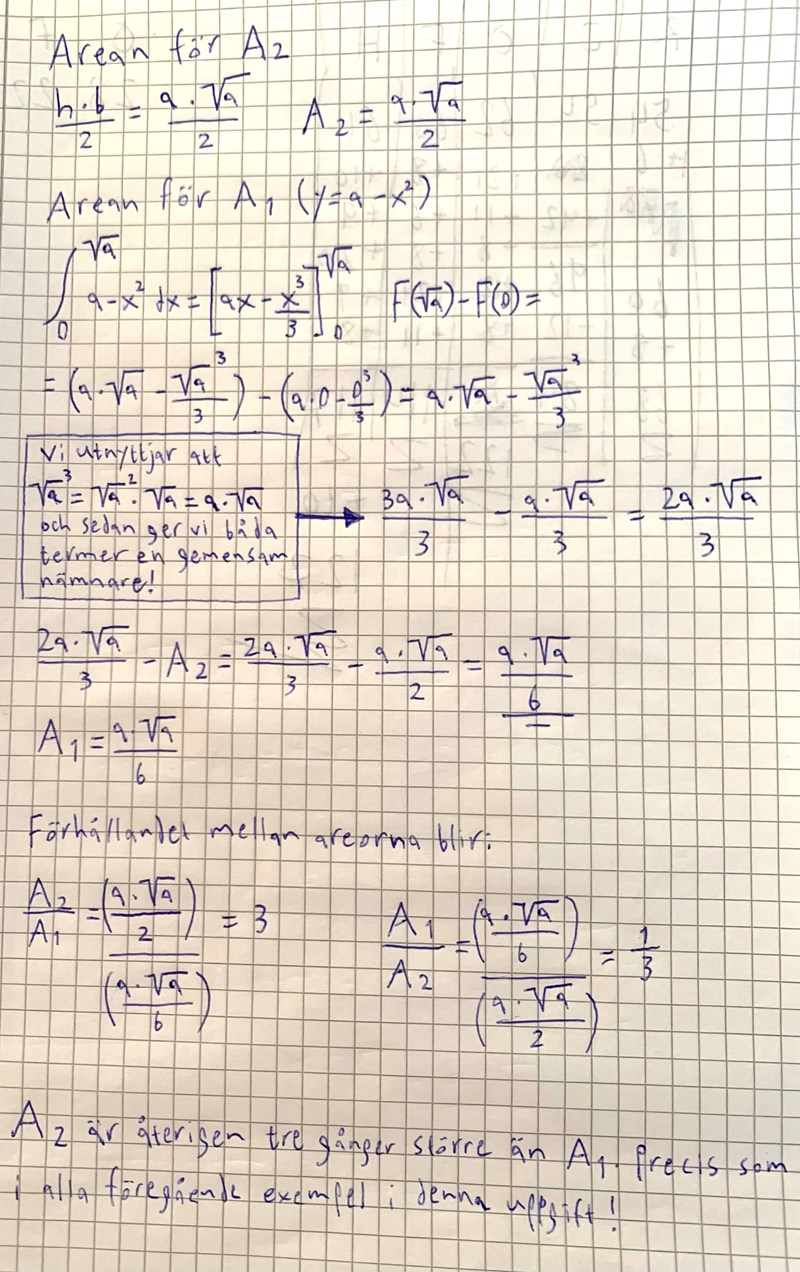 Arean för A₂
h·b/2 = a·√a/2   A₂ = a·√a/2
Arean för A₁ (y=a-x²)
∫₀^√a a-x² dx = [ax - x³/3]₀^√a   F(√a)-F(0)=
= (a·√a - √a³/3) - (a·0 - 0³/3) = a·√a - √a³/3
Vi utnyttjar att
√a³ = √a²·√a = a·√a
och sedan ger vi båda
termer en gemensam
nämnare!
→ 3a·√a/3 - a·√a/3 = 2a·√a/3
2a·√a/3 - A₂ = 2a·√a/3 - a·√a/2 = a·√a/6
A₁ = a·√a/6
Förhållandet mellan areorna blir:
A₂/A₁ = (a·√a/2)/(a·√a/6) = 3   A₁/A₂ = (a·√a/6)/(a·√a/2) = 1/3
A₂ är återigen tre gånger större än A₁. Precis som
i alla föregående exempel i denna uppgift!